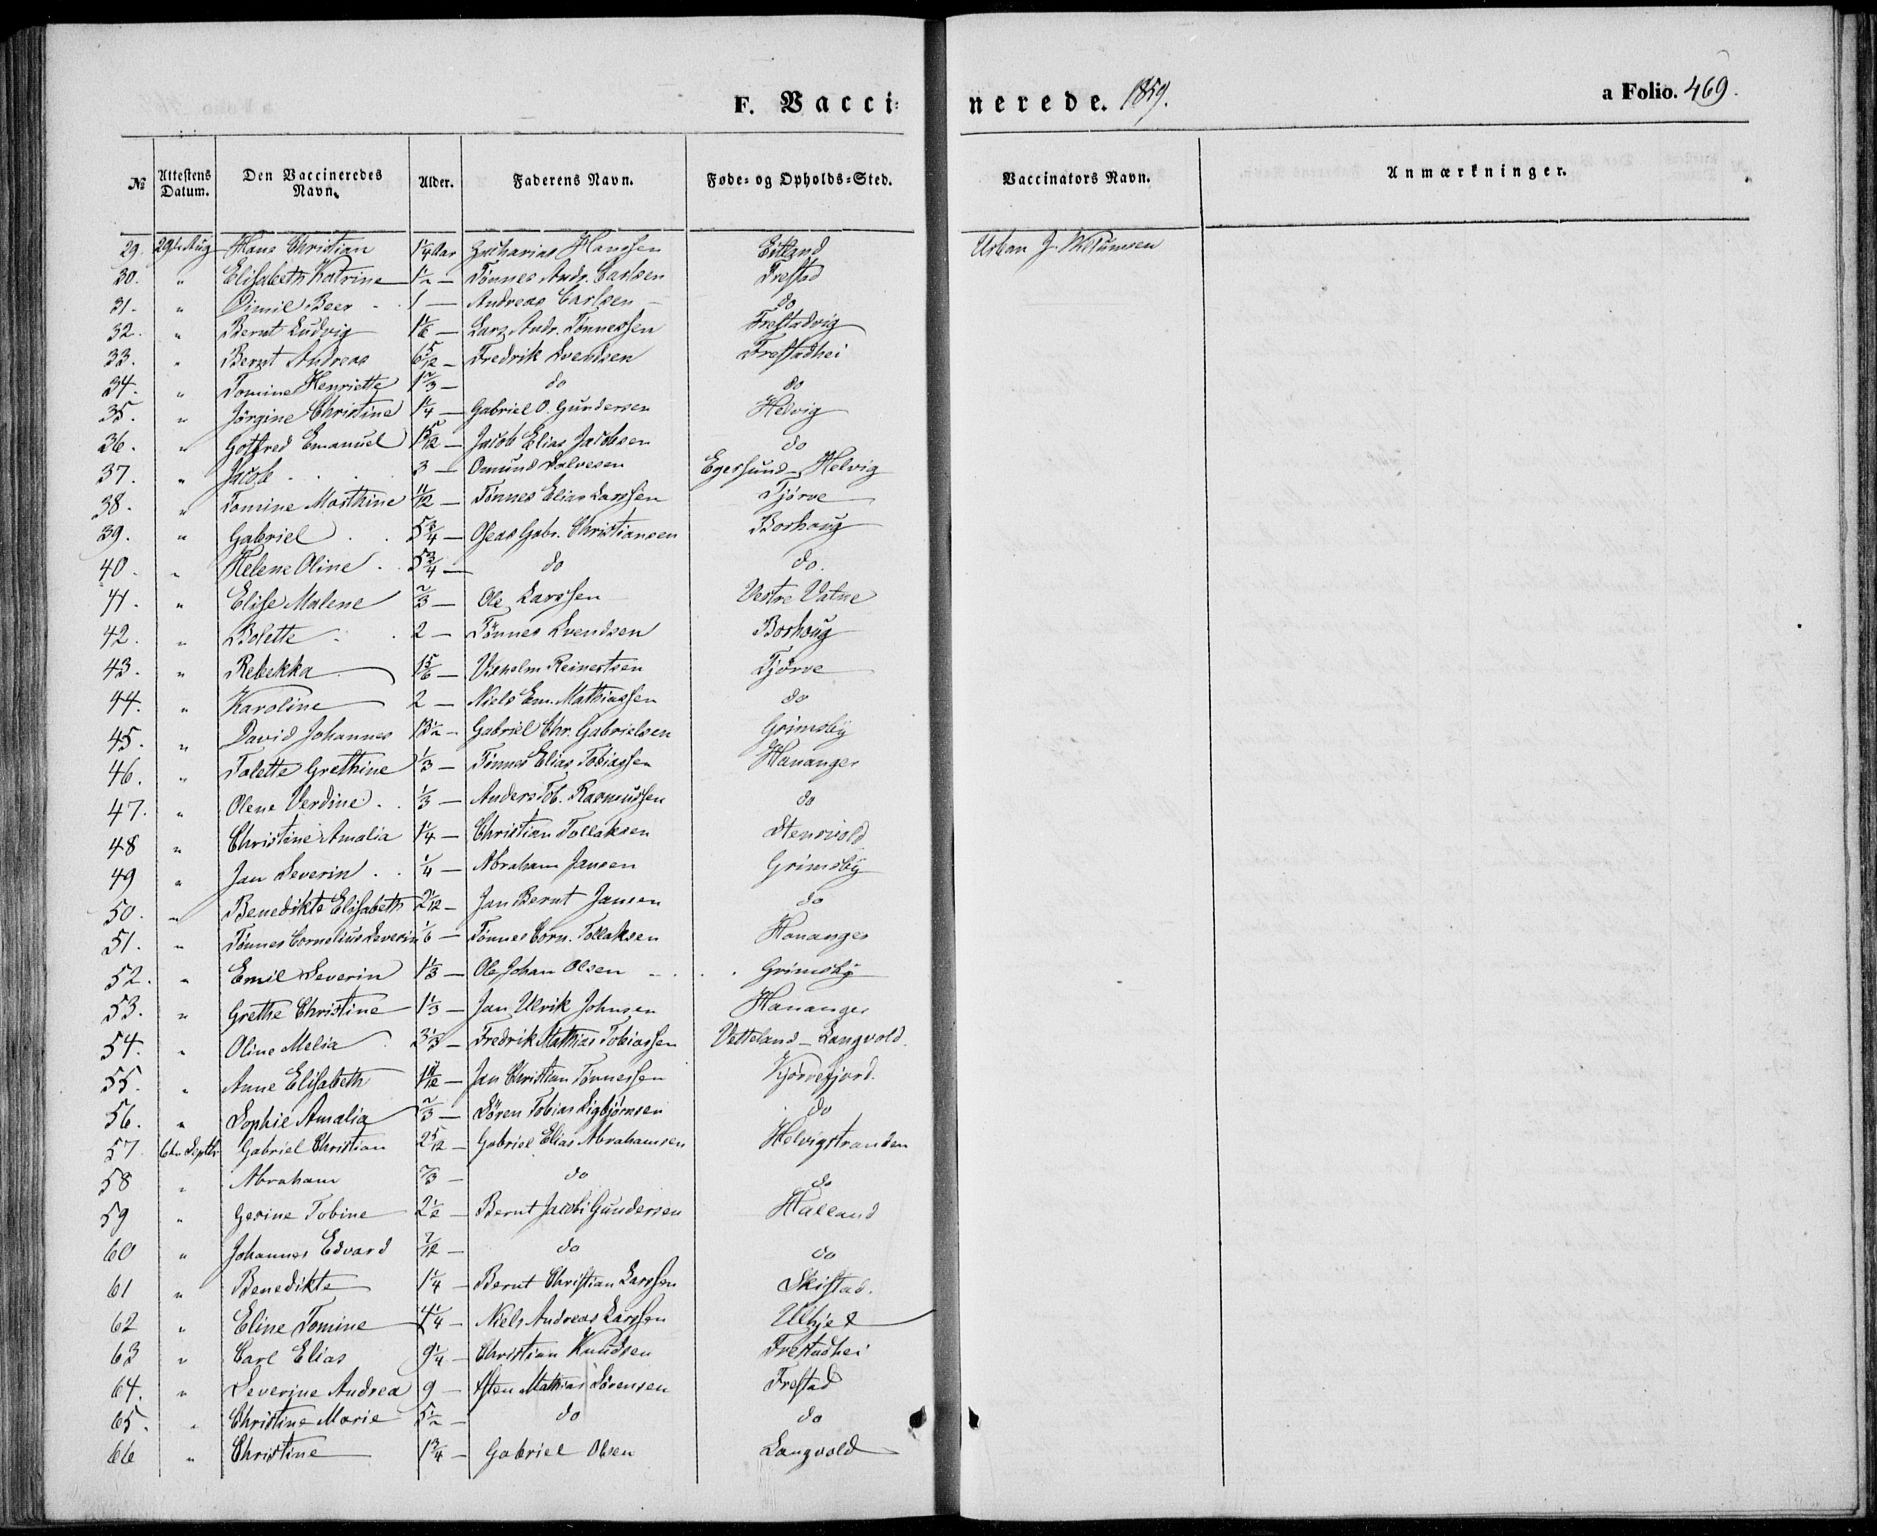 F. Vaccinerede. 1859. a Folio. 469.
№ Attestens Datum. Den Vaccineredes Navn. Alder. Faderens Navn. Føde- og Opholds-Sted. Vaccinators Navn. Anmærkninger.
29. 29de Aug Hans Christian 1 1/4 Aar Zacharias Hanssen Urban J.
30. " Elisabeth Katrine 1/2 — Tønnes Andr. Carlsen Frestad
31. " Beer 1 — Andreas Carlsen do
32. " Bernt Ludvig 1 1/6 — Lars Andr. Tønnessen Frestadvig
33. " Bernt Andreas 6 5/12 — Fredrik Svendsen Frestadhei
34. " Tomine Henriette 1 2/3 — do do
35. " Jörgine Christine 1 1/4 — Gabriel O. Gundersen Helvig
36. " Gotfred Emanuel 1 5/12 — Jacob Elias Jacobsen do
37. " Jacob 3 — Omund Salvesen Egersund — Helvig
38. " Tomine Marthine 11/12 — Tønnes Elias Larssen Tjørve
39. " Gabriel 5 3/4 — Oseas Gabr. Christiansen Borhaug
40. " Helene Oline 5 3/4 — do do.
41. " Elise Malene 2/3 — Ole Larssen Vestre Vatne
42. " Bolette 2 — Tønnes Svendsen Borhaug
43. " Rebekka 1 5/6 — Vilhelm Reinertsen Tjørve
44. " Karoline 2 — Niels Em. Mathiassen do
45. " David Johannes 13 1/2 — Gabriel Chr. Gabrielsen Grimsby
46. " Talette Grethine 1/3 — Tønnes Elias Tobiassen Hananger
47. " Olene Verdine 1/3 — Anders Tob. Rasmussen do
48 " Christine Amalia 1 1/4 — Christian Tollaksen Stensvold
49 " Jan Severin 1/4 — Abraham Jansen Grimsby
50. " Benedikte Elisabeth 2 1/12 — Jan Bernt Jansen do
51. " Tønnes Cornelius Severin 1/6 — Tønnes Corn. Tollaksen Hananger
52. " Emil Severin 1 1/3 — Ole Johan Olsen Grimsby
53. " Grethe Christine 1 1/3 — Jan Ulrik Johnsen Hananger
54. " Oline Melia 3 1/3 — Fredrik Mathias Tobiassen Vetteland — Langvold.
55. " Anne Elisabeth — Jan Christian Tønnessen Kjørrefjord.
56. " Sophie Amalia 2/3 — Søren Tobias Sigbjørnsen do
57. 6te Septbr Gabriel Christian 2 5/12 — Gabriel Elias Abrahamsen Helvigstranden
58 " Abraham 2/3 — do do
59 " Gesine Tobine 2 1/2 — Bernt Jacobi Gundersen Halland
60 " Johannes Edvard 7/12 — do do
61 " Benedikte 1 1/4 — Bernt Christian Larssen Skistad.
62 " Eline Tomine 4 1/4 — Niels Andreas Larssen
63 " Carl Elias 9 1/4 — Christian Knudsen Frestadhei
64. " Severine Andrea 9 — Sten Mathias Sørensen Frestad
65. " Christine Marie 5 1/2 — do do
66 " Christine 1 3/4 — Gabriel Olsen Langvold